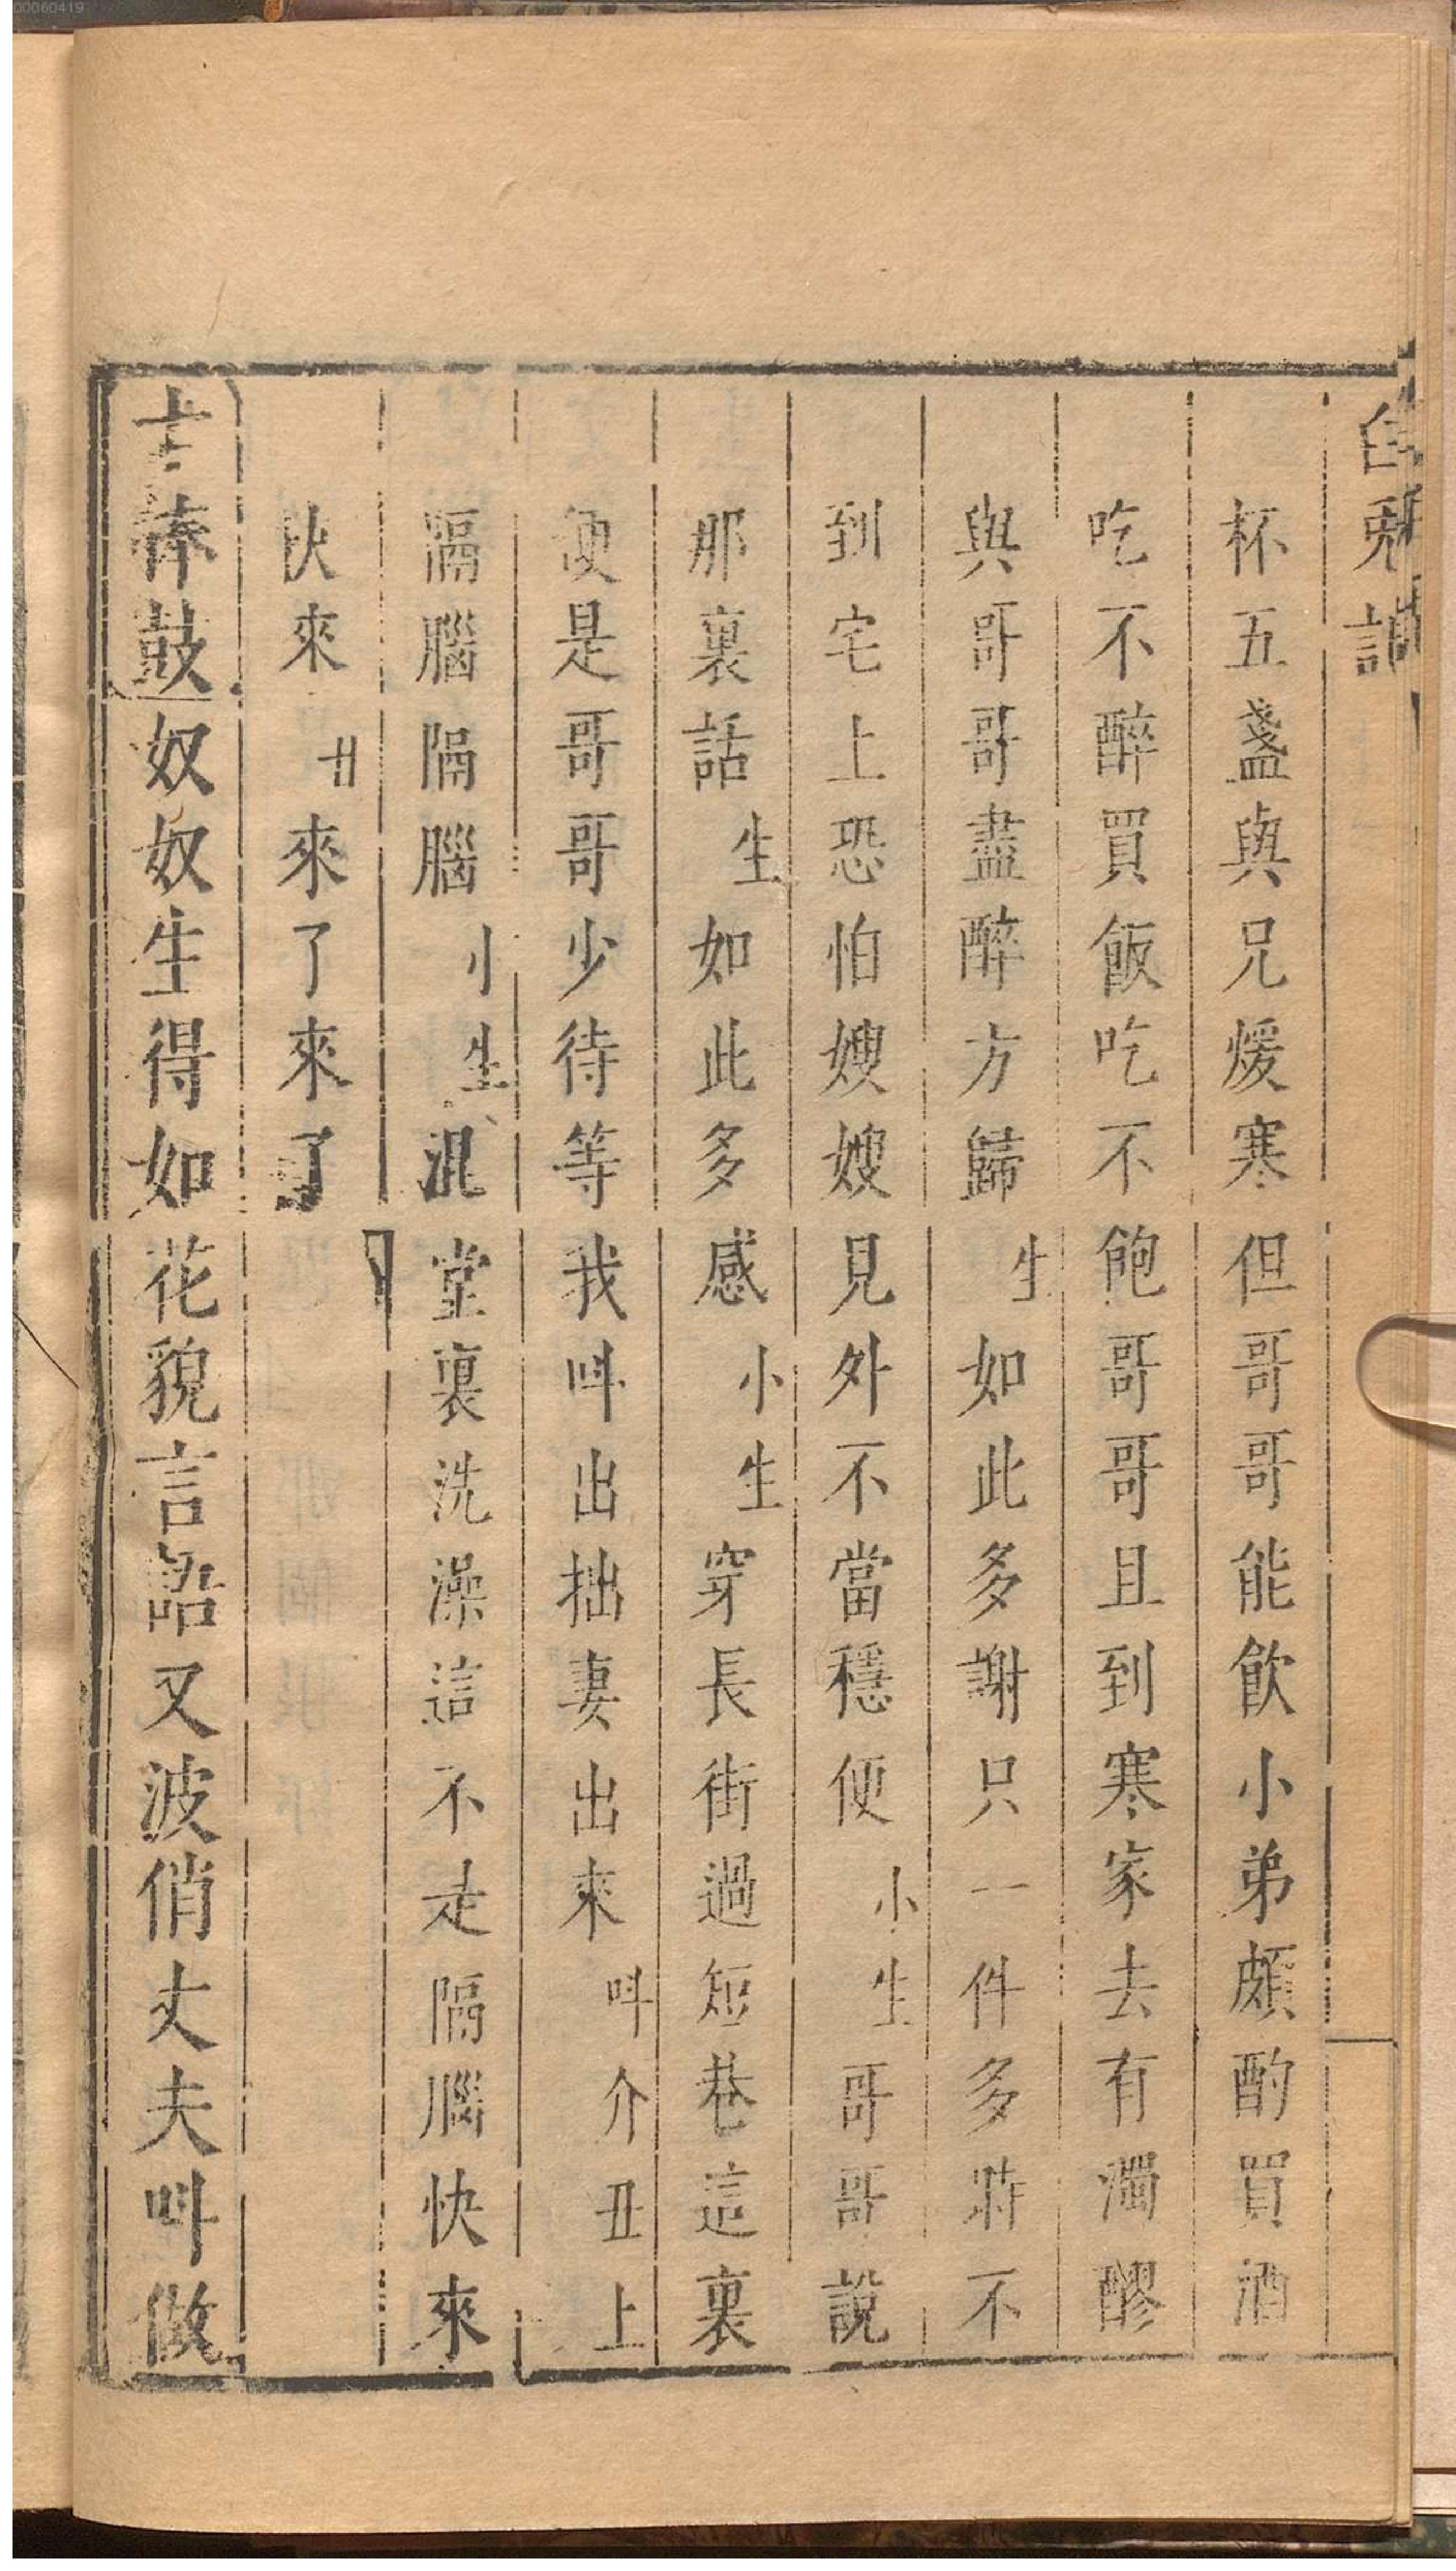 00060419
白兎記
杯五盞與兄煖寒但哥哥能飲小弟頗酌買酒
吃不醉買飯吃不飽哥哥且到寒家去有濁醪
與哥哥盡醉方歸生如此多謝只一件多時不
到宅上恐怕嫂嫂見外不當穩便小生哥哥說
那裏話生如此多感小生穿長街過短巷這裏
便是哥哥少待等我呌出拙妻出來呌介丑上
隔腦隔腦小生混堂裏洗澡這不走隔腦快來
快來丑來了來了
十棒鼓奴奴生得如花貌言語又波俏丈夫呌做